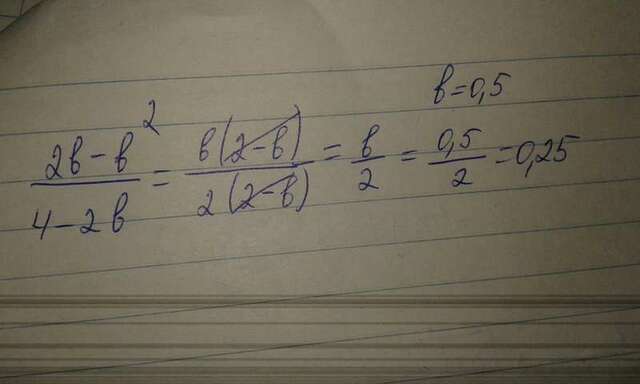 b=0,5
\frac{2b-b^2}{4-2b} = \frac{b(2-b)}{2(2-b)} = \frac{b}{2} = \frac{0,5}{2} = 0,25